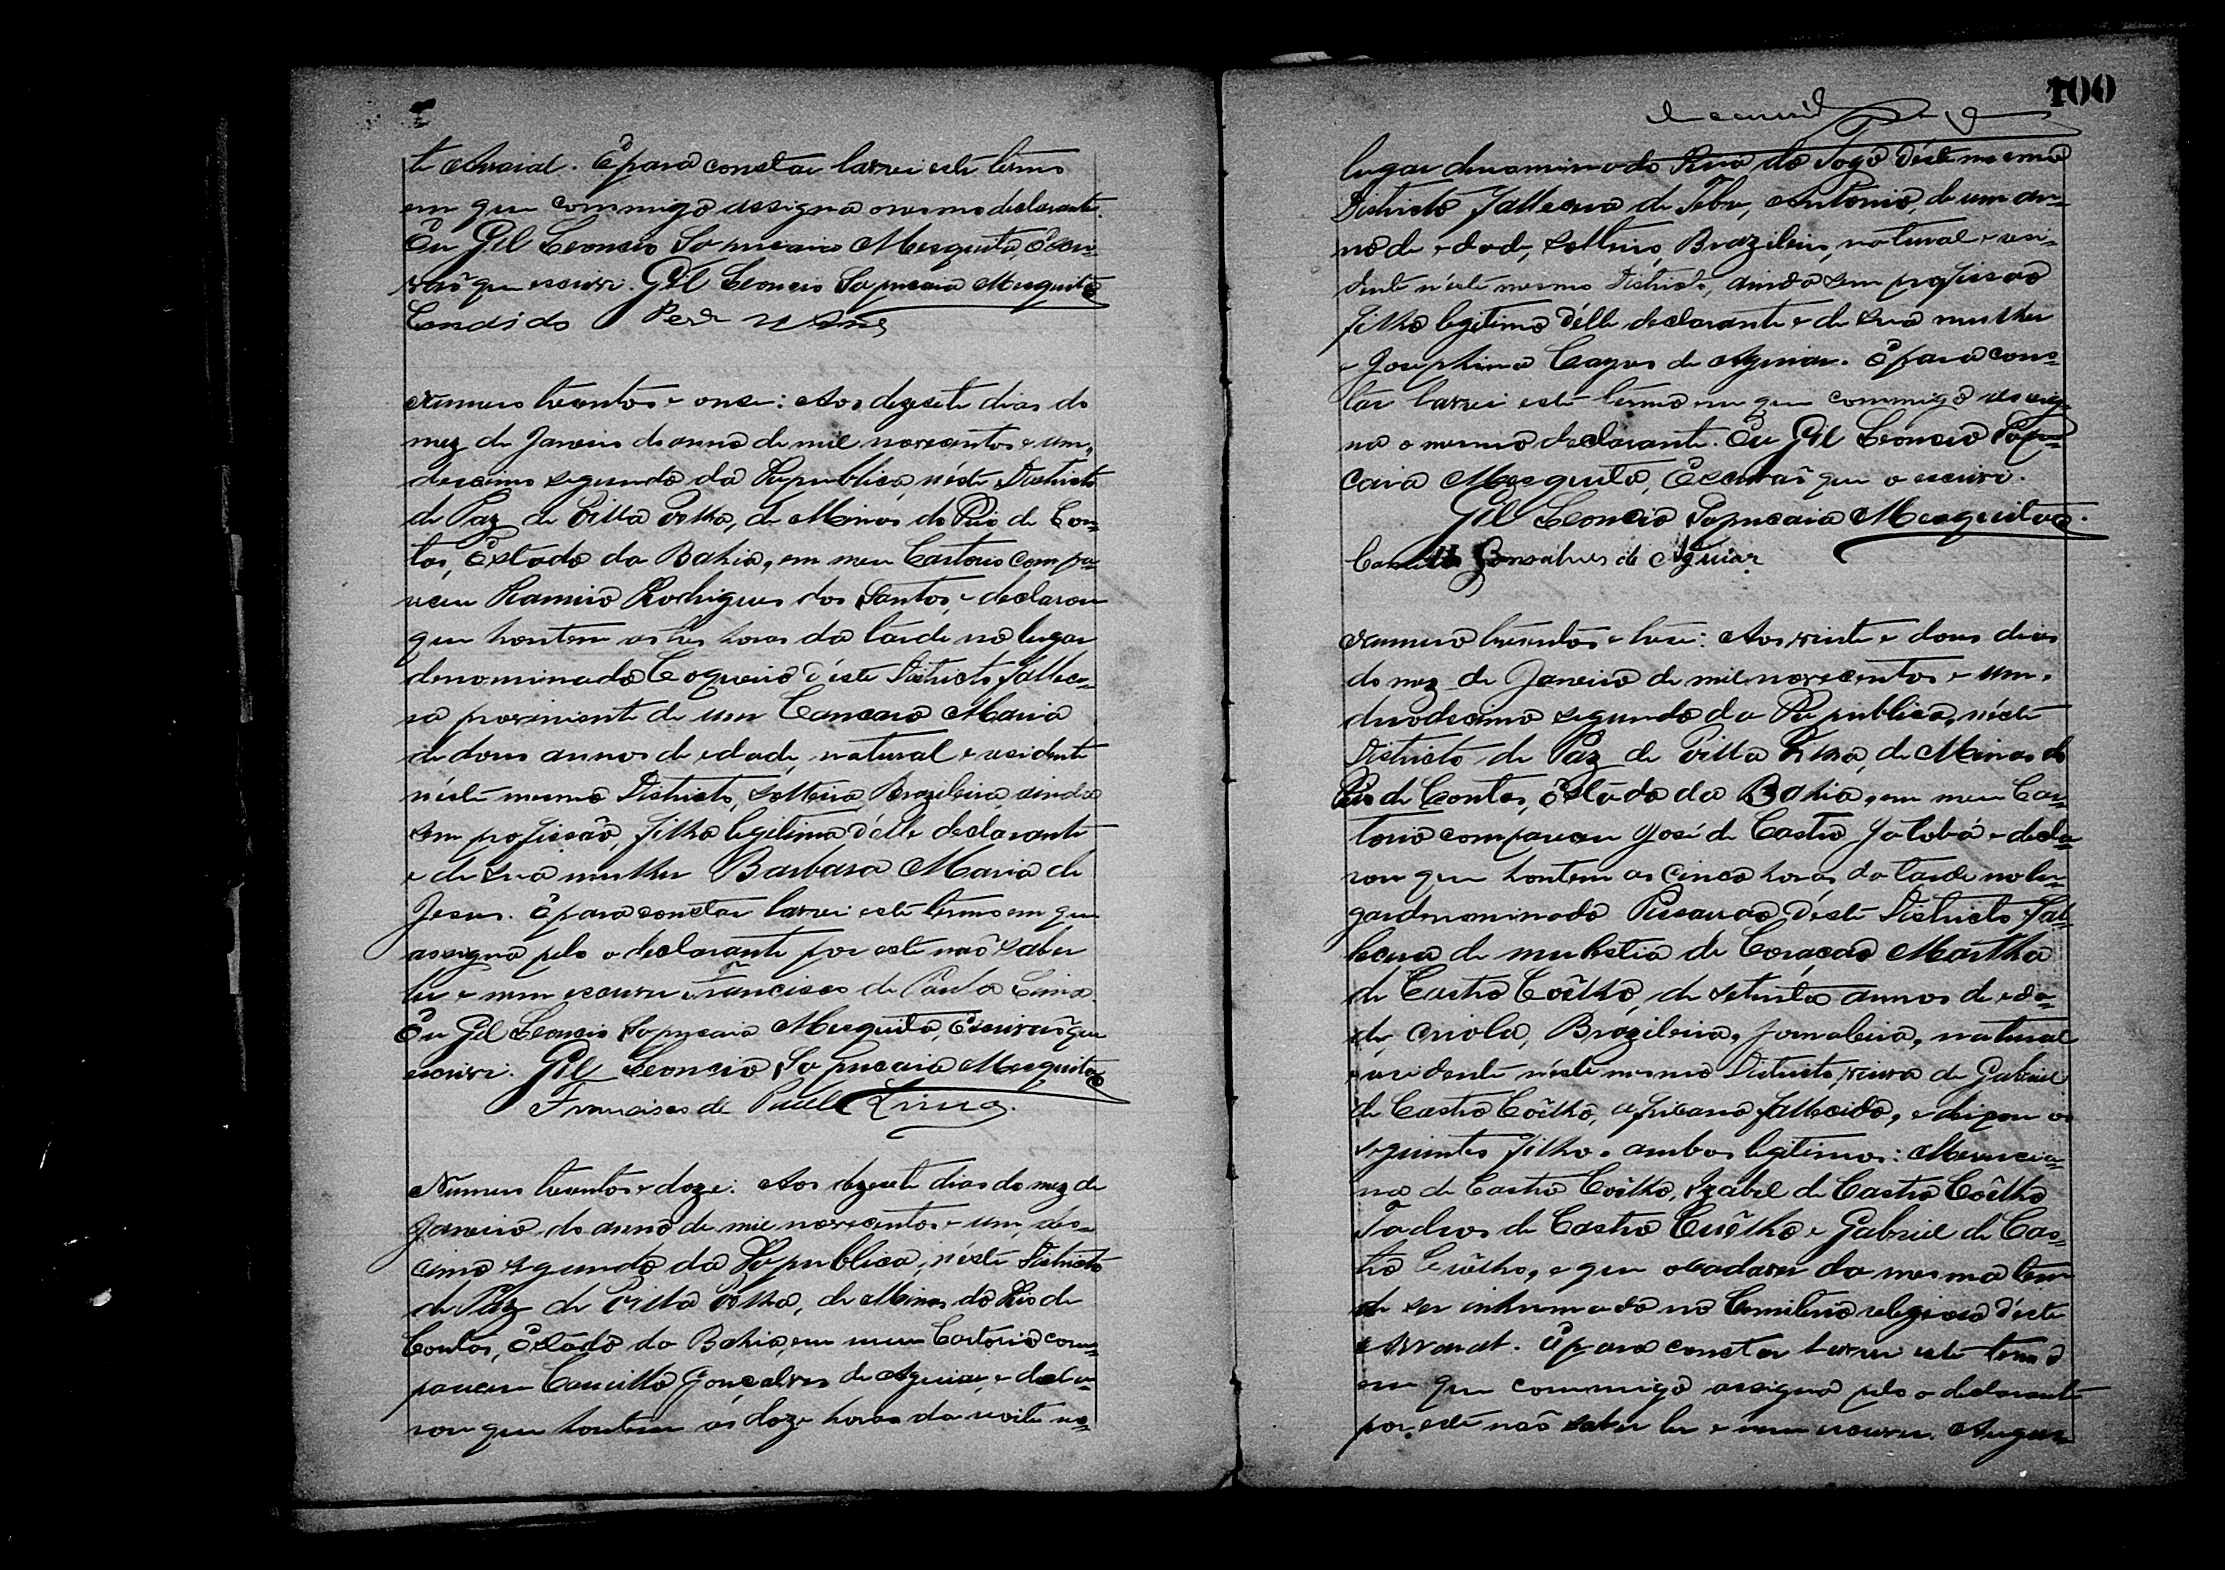 te Arraial. E para constar lavrei este termo
em que commigo assigna o mesmo declarante.
Eu Gil Leoncio Sapucaia Mesquita, Escri=
vão que escrivi. Gil Leoncio Sapucaia Mesquita
Candido
Numero tresentos e onse: Aos dezesete dias do
mez de Janeiro do anno de mil novecentos e um,
decimo segundo da Republica, néste Districto
de Paz de Villa Velha, de Minas do Rio de Con=
tas, Estado da Bahia, em meu Cartorio compa=
receu Ramiro Rodrigues dos Santos, e declarou
que hontem as tres horas da tarde no lugar
denominado Coqueiro d'éste Districto falleceu
proviniente de um Cancaro Maria
de dous annos de edade, natural e residente
néste mesmo Districto, solteira, Brazileira, ainda
sem profissão, filha legitima d'elle declarante
e de sua mulher Barbara Maria de
Jesus. E para constar lavrei este termo em que
assigna pelo o declarante por este não saber
ler e nem escrever Francisco de Paula Lima.
Eu Gil Leoncio Sapucaia Mesquita, Escrivão que
escrivi. Gil Leoncio Sapucaia Mesquita
Francisco de Paula Lima.
Numero tresentos e doze: Aos dezesete dias do mez de
Janeiro do anno de mil novecentos e um, de=
cimo segundo da Republica, néste Districto
de Paz de Villa Velha, de Minas do Rio de
Contas, Estado da Bahia, em meu Cartorio com=
pareceu Camillo Gonçalves de Aguiar, e decla=
rou que hontem as doze horas da noite no=
100
lugar denominado Rua do Fogo déste mesmo
Districto falleceu de Febre, Antonio, de um an=
no de edade, solteiro, Brazileiro, natural e resi=
dente néste mesmo Districto, ainda sem profissão
filho legitimo d'élle declarante e de sua mulher
Josephina de Aguiar. E para cons=
tar lavrei este termo em que commigo assig=
na o mesmo declarante. Eu Gil Leoncio Sapu=
caia Mesquita, Escrivão que o escrivi.
Gil Leoncio Sapucaia Mesquita.
Camillo Gonsalves de Aguiar
Numero tresentos e trese: Aos vinte e dous dias
do mez de Janeiro de mil novecentos e um,
duodecimo segundo da Republica, néste
Districto de Paz de Villa Velha, de Minas do
Rio de Contas, Estado da Bahia, em meu Car=
torio compareceu José de Castro Jatobá e decla=
rou que hontem as cinco horas da tarde no lu=
gar denominado déste Districto, fal=
leceu de mulestia de Coração Martha
de Castro Coêlho, de setenta annos de eda=
de, criola, Brazileira, jornaleira, natural
e residente néste mesmo Districto, viuva de Gabriel
de Castro Coêlho, africano fallecido, e deixou os
seguintes filhos ambos legitimos:
de Castro Coêlho, Izabel de Castro Coêlho
de Castro Coêlho e Gabriel de Cas=
tro Coêlho, e que o cadaver da mesma tem
de ser inhumado no Cemiterio religioso déste
Arraial. E para constar lavrei este termo
em que commigo assigna pelo o declarante
por este não saber ler e nem escrever.